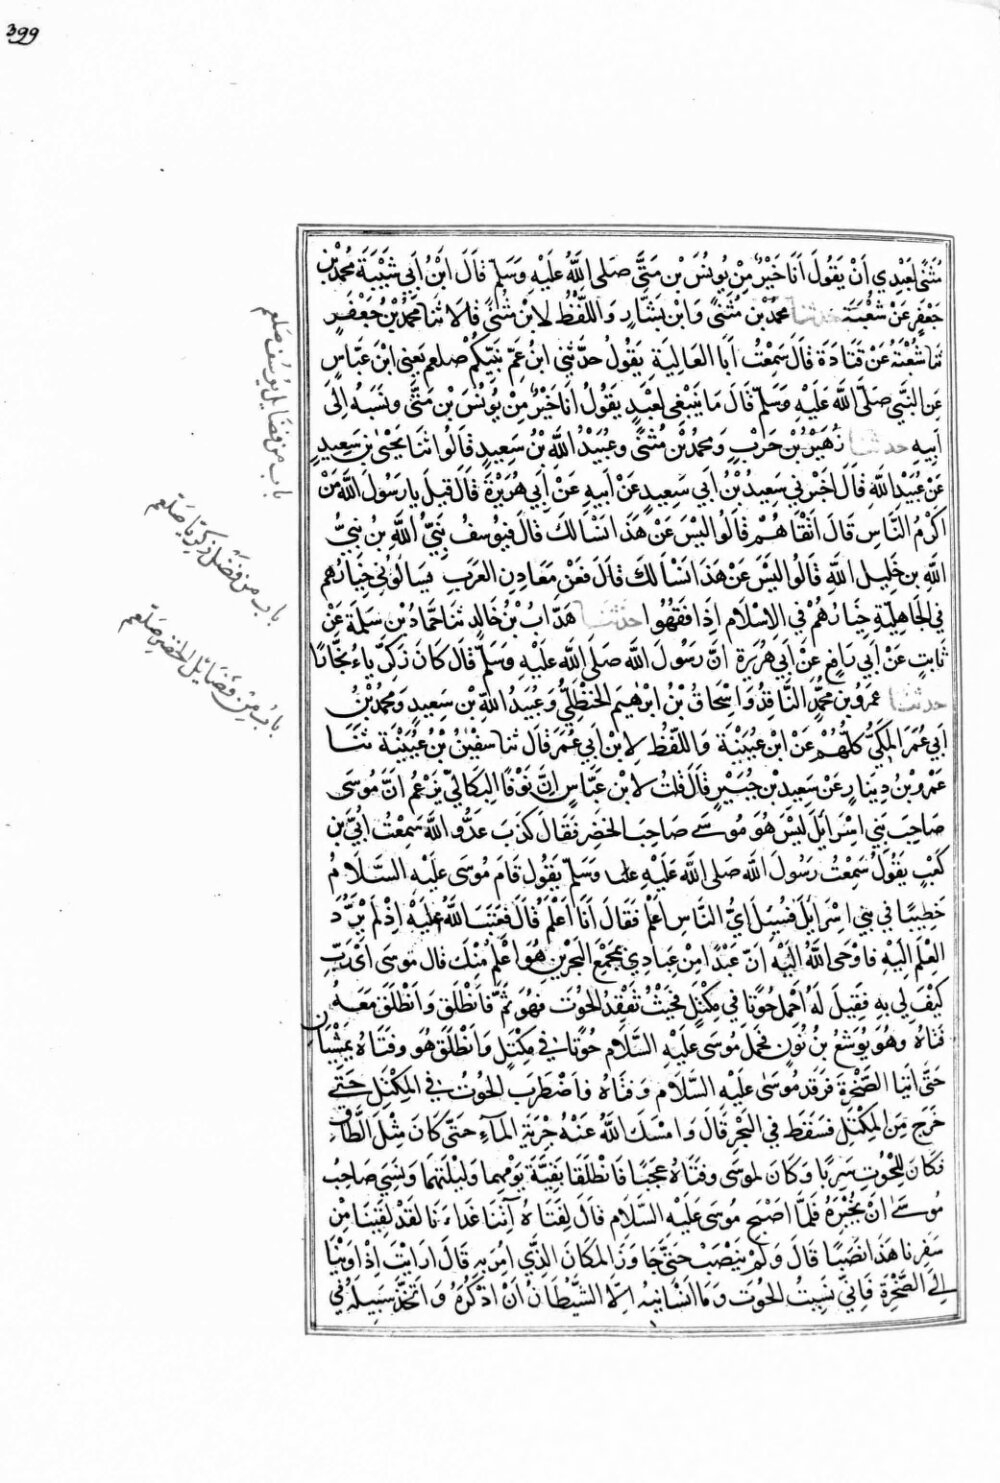 399
مُثَنًّى لِعَبْدِي أَنْ يَقُولَ أَنَا خَيْرٌ مِنْ يُونُسَ بْنِ مَتَّى صَلَى اللهُ عَلَيْهِ وَسَلَّمَ قَالَ ابْنُ أَبِي شَيْبَةَ مُحَمَّدُ بْنُ
جَعْفَرٍ عَنْ شُعْبَةَ حدثنا مُحَمَّدُ بْنُ مُثَنًّى وَابْنُ بَشَّارٍ وَاللَّفْظُ لِابْنِ مُثَنًّى قَالَا ثَنَا مُحَمَّدُ بْنُ جَعْفَرٍ
ثَنَا شُعْبَةُ عَنْ قَتَادَةَ قَالَ سَمِعْتُ أَبَا العَالِيَةِ يَقُولُ حَدَّثَنِي ابْنُ عَمِّ نَبِيِّكُمْ صلعم يَعْنِي ابْنَ عَبَّاسٍ
عَنِ النَّبِيِّ صَلَّى اللهُ عَلَيْهِ وَسَلَّمَ قَالَ مَا يَنْبَغِي لِعَبْدٍ يَقُولُ أَنَا خَيْرٌ مِنْ يُونُسَ بْنِ مَتَّى وَنَسَبَهُ إِلَى
أَبِيهِ حدثنا زُهَيْرُ بْنُ حَرْبٍ وَمُحَمَّدُ بْنُ مُثَنًّى وَعُبَيْدُ اللهِ بْنُ سَعِيدٍ قَالُوا ثَنَا يَحْيَى بْنُ سَعِيدٍ
عَنْ عُبَيْدِ اللهِ قَالَ أَخْبَرَنِي سَعِيدُ بْنُ أَبِي سَعِيدٍ عَنْ أَبِيهِ عَنْ أَبِي هُرَيْرَةَ قَالَ قِيلَ يَا رَسُولَ اللهِ مَنْ
أَكْرَمُ النَّاسِ قَالَ أَتْقَاهُمْ قَالُوا لَيْسَ عَنْ هَذَا نَسْأَلُكَ قَالَ فَيُوسُفُ نَبِيُّ اللهِ بْنُ نَبِيِّ
اللهِ بْنِ خَلِيلِ اللهِ قَالُوا لَيْسَ عَنْ هَذَا نَسْأَلُكَ قَالَ فَعَنْ مَعَادِنِ العَرَبِ تَسْأَلُونِي خِيَارُهُمْ
فِي الجَاهِلِيَّةِ خِيَارُهُمْ فِي الإِسْلَامِ إِذَا فَقُهُوا حدثنا هَدَّابُ بْنُ خَالِدٍ ثَنَا حَمَّادُ بْنُ سَلَمَةَ عَنْ
ثَابِتٍ عَنْ أَبِي رَافِعٍ عَنْ أَبِي هُرَيْرَةَ أَنَّ رَسُولَ اللهِ صَلَى اللهُ عَلَيْهِ وَسَلَّمَ قَالَ كَانَ زَكَرِيَّاءُ نَجَّارًا
حدثنا عَمْرُو بْنُ مُحَمَّدٍ النَّاقِدُ وَإِسْحَاقُ بْنُ إِبْرَهِيمَ الحَنْظَلِيُّ وَعُبَيْدُ اللهِ بْنُ سَعِيدٍ وَمُحَمَّدُ بْنُ
أَبِي عُمَرَ المَكِّيُّ كُلُّهُمْ عَنْ ابْنِ عُيَيْنَةَ وَاللَّفْظُ لِابْنِ أَبِي عُمَرَ قَالَ ثَنَا سُفْيَنُ بْنُ عُيَيْنَةَ ثَنَا
عَمْرُو بْنُ دِينَارٍ عَنْ سَعِيدِ بْنِ جُبَيْرٍ قَالَ قُلْتُ لِابْنِ عَبَّاسٍ إِنَّ نَوْفًا البَكَالِيَّ يَزْعُمُ أَنَّ مُوسَى
صَاحِبَ بَنِي إِسْرَائِلَ لَيْسَ هُوَ مُوسَى صَاحِبَ الخَضِرِ فَقَالَ كَذَبَ عَدُوُّ اللهِ سَمِعْتُ أُبَيَّ بْنَ
كَعْبٍ يَقُولُ سَمِعْتُ رَسُولَ اللهِ صَلَى اللهُ عَلَيْهِ وَسَلَّمَ يَقُولُ قَامَ مُوسَى عَلَيْهِ السَّلَامُ
خَطِيبًا فِي بَنِي إِسْرَائِلَ فَسُئِلَ أَيُّ النَّاسِ أَعْلَمُ فَقَالَ أَنَا أَعْلَمُ قَالَ فَعَتَبَ اللهُ عَلَيْهِ إِذْ لَمْ يَرُدَّ
العِلْمَ إِلَيْهِ فَأَوْحَى اللهُ إِلَيْهِ أَنَّ عَبْدًا مِنْ عِبَادِي بِمَجْمَعِ البَحْرَيْنِ هُوَ أَعْلَمُ مِنْكَ قَالَ مُوسَى أَيْ رَبِّ
كَيْفَ لِي بِهِ فَقِيلَ لَهُ احْمِلْ حُوتًا فِي مِكْتَلٍ فَحَيْثُ تَفْقِدُ الحُوتَ فَهُوَ ثَمَّ فَانْطَلَقَ وَانْطَلَقَ مَعَهُ
فَتَاهُ وَهُوَ يُوشَعُ بْنُ نُونٍ فَحَمَلَ مُوسَى عَلَيْهِ السَّلَامُ حُوتًا فِي مِكْتَلٍ وَانْطَلَقَ هُوَ وَفَتَاهُ يَمْشِيَانِ
حَتَّى أَتَيَا الصَّخْرَةَ فَرَقَدَ مُوسَى عَلَيْهِ السَّلَامُ وَفَتَاهُ فَاضْطَرَبَ الحُوتُ فِي المِكْتَلِ حَتَّى
خَرَجَ مِنَ المِكْتَلِ فَسَقَطَ فِي البَحْرِ قَالَ وَامْسَكَ اللهُ عَنْهُ جِرْيَةَ المَاءِ حَتَّى كَانَ مِثْلَ الطَّاقِ
فَكَانَ لِلْحُوتِ سَرَبًا وَكَانَ لِمُوسَى وَفَتَاهُ عَجَبًا فَانْطَلَقَا بَقِيَّةَ يَوْمِهِمَا وَلَيْلَتِهِمَا وَنَسِيَ صَاحِبُ
مُوسَى أَنْ يُخْبِرَهُ فَلَمَّا أَصْبَحَ مُوسَى عَلَيْهِ السَّلَامُ قَالَ لِفَتَاهُ آتِنَا غَدَاءَنَا لَقَدْ لَقِينَا مِنْ
سَفَرِنَا هَذَا نَصَبًا قَالَ وَلَمْ يَنْصَبْ حَتَّى جَاوَزَ المَكَانَ الَّذِي أُمِرَ بِهِ قَالَ أَرَأَيْتَ إِذْ أَوَيْنَا
إِلَى الصَّخْرَةِ فَإِنِّي نَسِيتُ الحُوتَ وَمَا أَنْسَانِيهِ إِلَّا الشَّيْطَانُ أَنْ أَذْكُرَهُ وَاتَّخَذَ سَبِيلَهُ فِي
باب من فضايل يوسف صلعم
باب من فضل زكريا صلعم
باب من فضائل الخضر صلعم